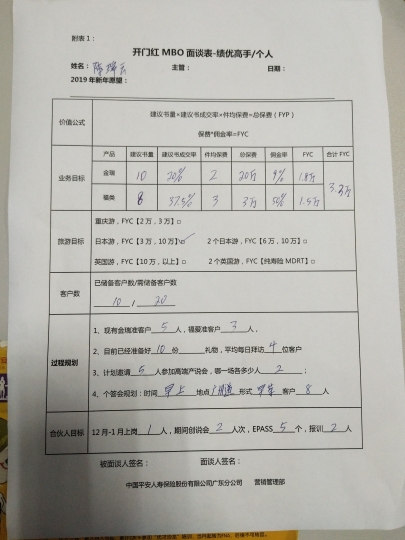 附表1：
开门红 MBO 面谈表-绩优高手/个人
姓名： 主管： 日期：
2019 年新年愿望：
价值公式
建议书量×建议书成交率×件均保费=总保费（FYP）
保费*佣金率=FYC
业务目标
产品 建议书量 建议书成交率 件均保费 总保费 佣金率 FYC 合计 FYC
金瑞 10 20% 2 20万 9% 1.8万 3.3万
福类 8 37.5% 3 3万 50% 1.5万
旅游目标
重庆游，FYC【2 万，3 万】□
日本游，FYC【3 万，10 万】□✓ 2 个日本游，FYC【6 万，10 万】□
英国游，FYC【10 万，以上】□ 2 个英国游，FYC【纯寿险 MDRT】□
客户数
已储备客户数/需储备客户数
10 / 20
过程规划
1、现有金瑞准客户 5 人，福爱准客户 3 人，
2、目前已经准备好 10 份 礼物，平均每日拜访 4 位客户
3、计划邀请 5 人参加高端产说会，哪一场各多少人 2 ；
4、个答会规划：时间 早上 地点 形式 早茶 客户 8 人
合伙人目标
12 月-1 月上岗 1 人，期间创说会 2 人次，EPASS 5 个，报训 2 人
被面谈人签名： 面谈人签名：
中国平安人寿保险股份有限公司广东分公司 营销管理部